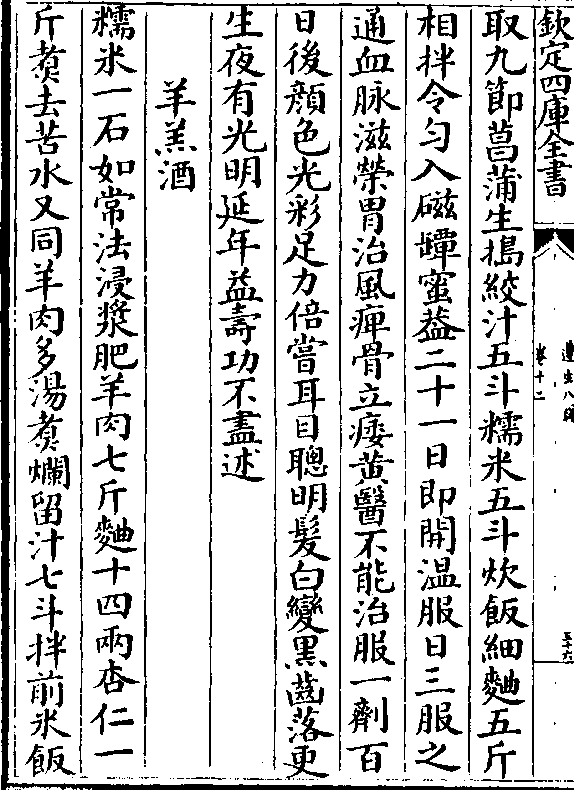 欽定四庫全書
遵生八牋
卷十二
取九節菖蒲生搗絞汁五斗糯米五斗炊飯細麯五斤
相拌令勻入磁罈蜜葢二十一日即開溫服日三服之
通血脉滋榮胃治風痺骨立痿黄醫不能治服一劑百
日後顔色光彩足力倍嘗耳目聰明髪白變黑齒落更
生夜有光明延年益壽功不盡述
羊羔酒
糯米一石如常法浸漿肥羊肉七斤麯十四兩杏仁一
斤煑去苦水又同羊肉多湯煑爛留汁七斗拌前米飯